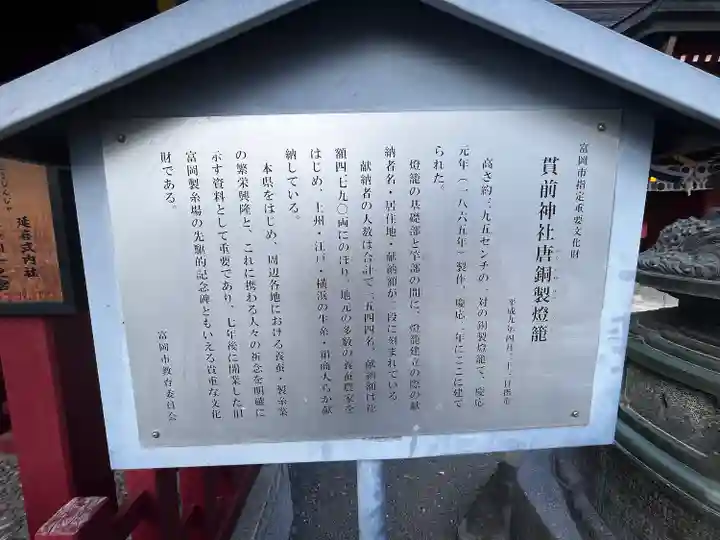 富岡市指定重要文化財
貫前神社唐銅製燈籠
平成九年四月二十二日指定
高さ約三九五センチの一対の銅製燈籠で、慶応
元年（一八六五年）製作、慶応二年にここに建て
られた。
燈籠の基礎部と竿部の間に、燈籠建立の際の献
納者名・居住地・献納額が二段に刻まれている
献納者の人数は合計で一五四四名、献納額は
額四、七九〇両にのぼり、地元の多数の養蚕農家を
はじめ、上州・江戸・横浜の生糸・絹商人らが献
納している。
本県をはじめ、周辺各地における養蚕・製糸業
の繁栄興隆と、これに携わる人々の祈念を明確に
示す資料として重要であり、七年後に開業した旧
富岡製糸場の先駆的記念碑ともいえる貴重な文化
財である。
富岡市教育委員会
延喜式内社